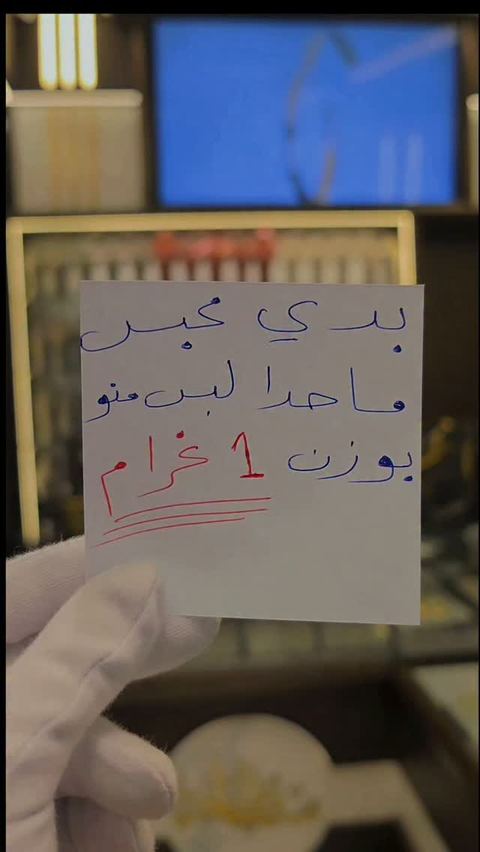 بدي محبس
ماحدا لبس منو
بوزن 1 غرام